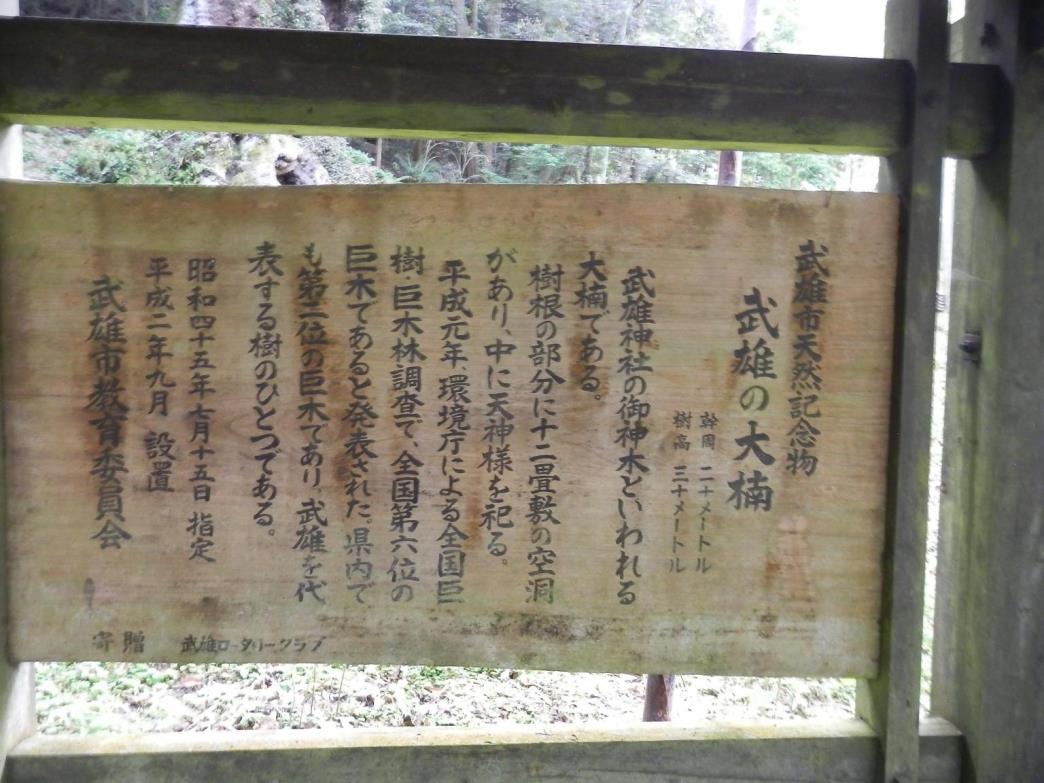 武雄市天然記念物
武雄の大楠
幹周 二十メートル
樹高 三十メートル
武雄神社の御神木といわれる
大楠である。
樹根の部分に十二畳敷の空洞
があり、中に天神様を祀る。
平成元年、環境庁による全国巨
樹・巨木林調査で、全国第六位の
巨木であると発表された。県内で
も第二位の巨木であり、武雄を代
表する樹のひとつである。
昭和四十五年七月十五日 指定
平成二年九月 設置
武雄市教育委員会
寄贈 武雄ロータリークラブ